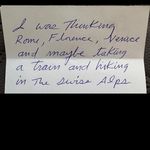 I was Thinking
Rome, Florence, Venice
and maybe taking
a train and hiking
in The Swiss Alps